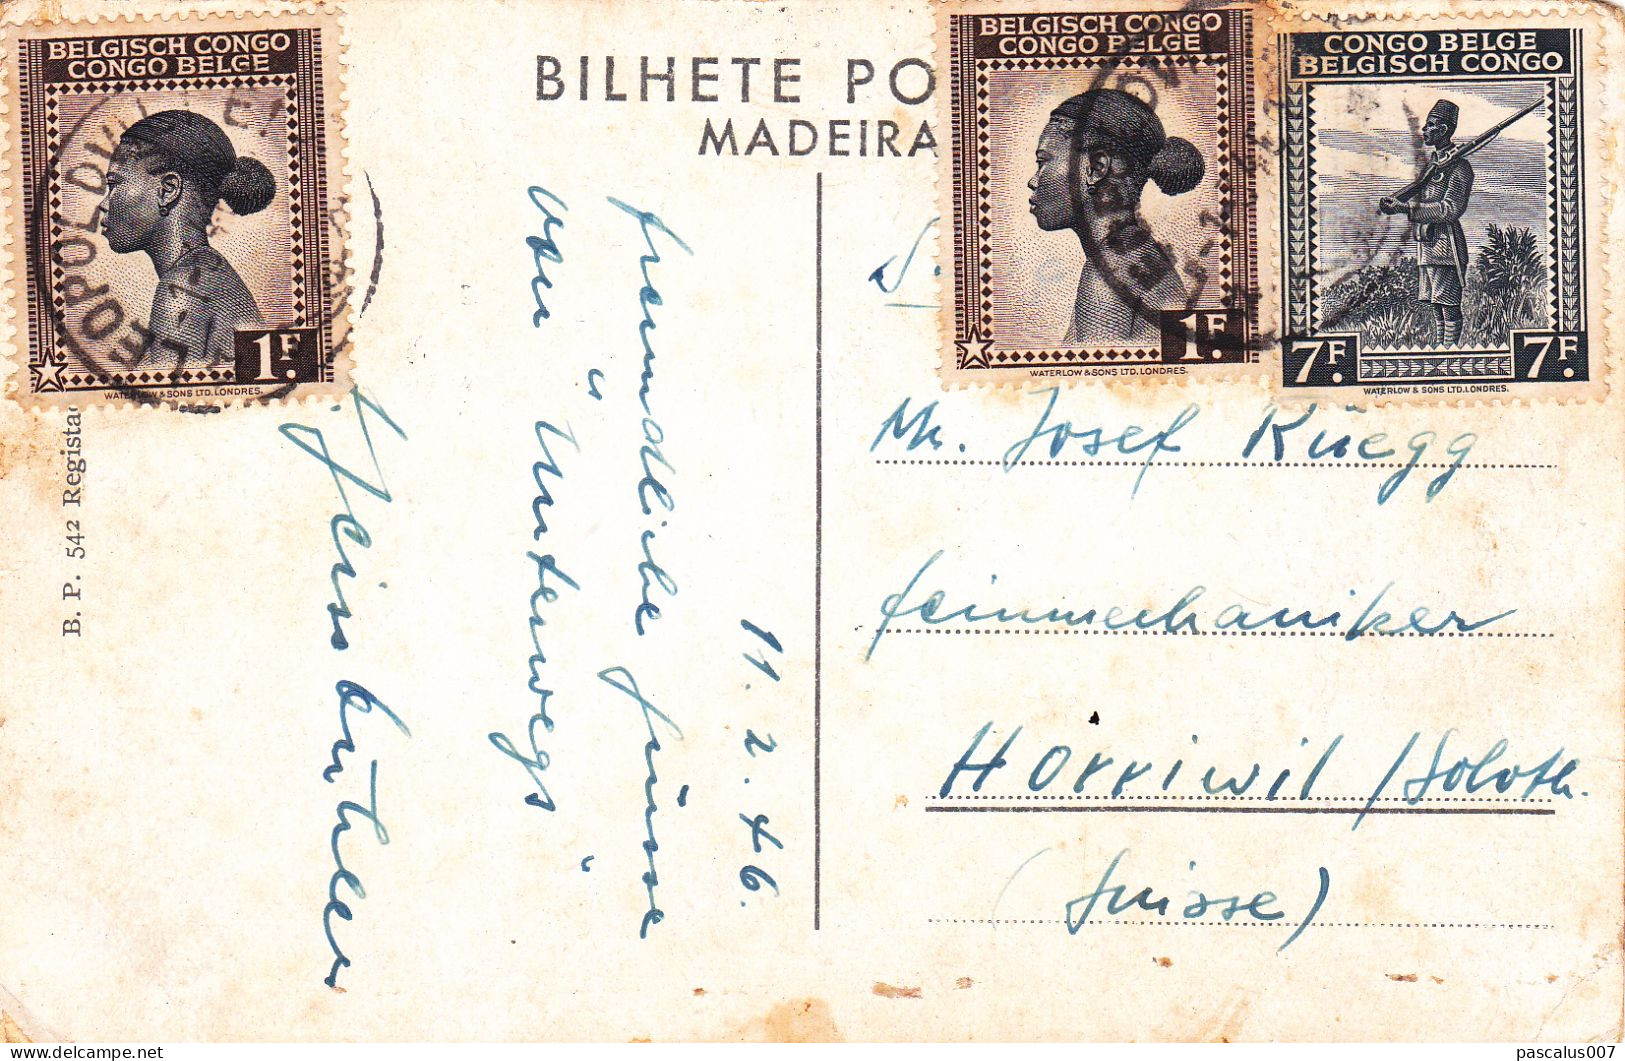 BELGISCH CONGO
CONGO BELGE
1F.
WATERLOW & SONS LTD. LONDRES.
LEOPOLDVILLE
BILHETE PO
MADEIRA
BELGISCH CONGO
CONGO BELGE
1F.
WATERLOW & SONS LTD. LONDRES.
CONGO BELGE
BELGISCH CONGO
7F. 7F.
WATERLOW & SONS LTD. LONDRES.
B. P. 542 Regista
11. 2. 46.
freundliche Grüsse
von "Unterwegs"
Mr. Josef Rüegg
feinmechaniker
Horriwil / Soloth.
(Suisse)
pascalus007